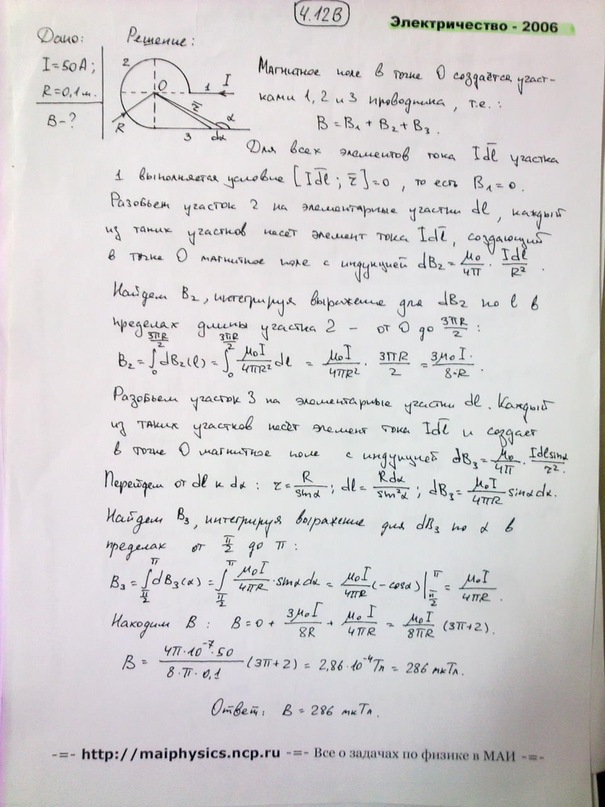 4.12В
Электричество - 2006
Дано: Решение:
I=50А;
R=0,1м.
B-?
2
O
1
I
r̄
α
R
3
dα
Магнитное поле в точке O создаётся участ-
ками 1, 2 и 3 проводника, т.е.:
B=B₁+B₂+B₃.
Для всех элементов тока Idl̄ участка
1 выполняется условие [Idl̄; r̄]=0, то есть B₁=0.
Разобьем участок 2 на элементарные участки dl, каждый
из таких участков несёт элемент тока Idl̄, создающий
в точке O магнитное поле с индукцией dB₂=μ₀/4π · Idl/R².
Найдем B₂, интегрируя выражение для dB₂ по l в
пределах длины участка 2 - от 0 до 3πR/2:
B₂=∫₀^(3πR/2) dB₂(l)=∫₀^(3πR/2) μ₀I/4πR² dl = μ₀I/4πR² · 3πR/2 = 3μ₀I/8·R.
Разобьем участок 3 на элементарные участки dl. Каждый
из таких участков несёт элемент тока Idl̄ и создает
в точке O магнитное поле с индукцией dB₃=μ₀/4π · Idlsinα/r².
Перейдем от dl к dα: r=R/sinα; dl=Rdα/sin²α; dB₃=μ₀I/4πR sinα dα.
Найдем B₃, интегрируя выражение для dB₃ по α в
пределах от π/2 до π:
B₃=∫_(π/2)^π dB₃(α)=∫_(π/2)^π μ₀I/4πR · sinα dα = μ₀I/4πR (-cosα)|_(π/2)^π = μ₀I/4πR.
Находим B: B=0+3μ₀I/8R+μ₀I/4πR = μ₀I/8πR (3π+2).
B = 4π·10⁻⁷·50/8·π·0,1 (3π+2) = 2,86·10⁻⁴Тл = 286 мкТл.
Ответ: B = 286 мкТл.
-=- http://maiphysics.ncp.ru -=- Все о задачах по физике в МАИ -=-